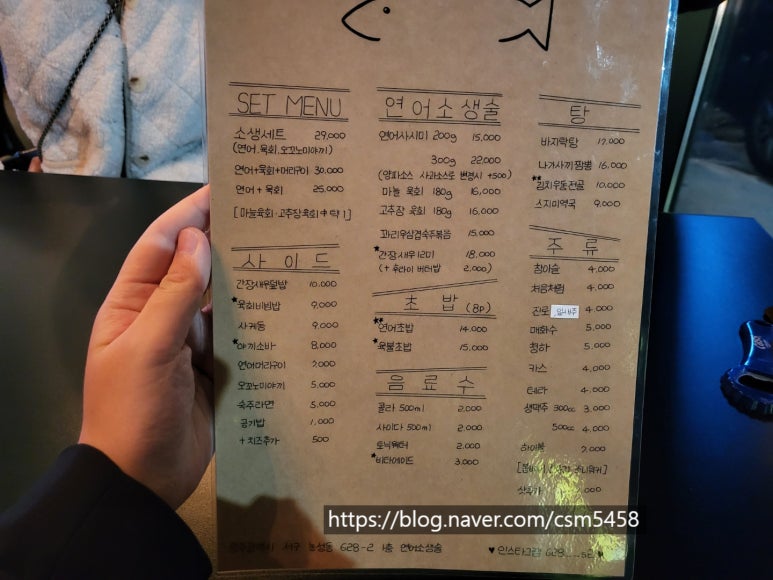 SET MENU
소생세트 29,000
(연어, 육회, 오꼬노미야끼)
연어+육회+머리구이 30,000
연어 + 육회 25,000
[마늘육회·고추장육회 中 택 1]
사이드
간장새우덮밥 10,000
★육회비빔밥 9,000
사케동 9,000
★야끼소바 8,000
연어머리구이 7,000
오꼬노미야끼 5,000
숙주라면 5,000
공기밥 1,000
+ 치즈추가 500
연어소생술
연어사시미 200g 15,000
300g 22,000
(양파소스 사과소스로 변경시 +500)
마늘 육회 180g 16,000
고추장 육회 180g 16,000
꽈리우삼겹숙주볶음 15,000
★간장새우 12미 18,000
(+ 후라이 버터밥 2,000)
초밥 (8p)
★★연어초밥 14,000
★육불초밥 15,000
음료수
콜라 500ml 2,000
사이다 500ml 2,000
토닉워터 2,000
★비타에이드 3,000
탕
바지락탕 17,000
나가사끼짬뽕 16,000
★★김치우동전골 10,000
스지미역국 9,000
주류
참이슬 4,000
처음처럼 4,000
진로 4,000
매화수 5,000
청하 5,000
카스 4,000
테라 4,000
생맥주 300cc 3,000
500cc 4,000
하이볼 7,000
서구 농성동 628-2 1층 연어소생술
♥인스타그램 628__s2♥
https://blog.naver.com/csm5458